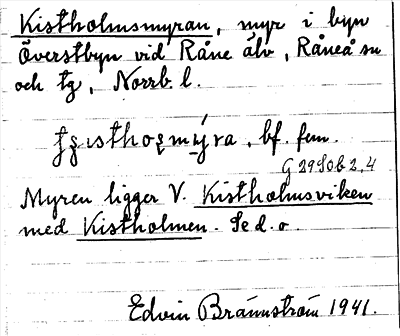 Kistholmsmyran, myr i byn
Överstbyn vid Råne älv, Råneå sn
och tg, Norrb. l.
bf. fem.
G 2950b 2,4
Myren ligger V. Kistholmsviken
med Kistholmen. Se d. o.
Edvin Brännström 1941.